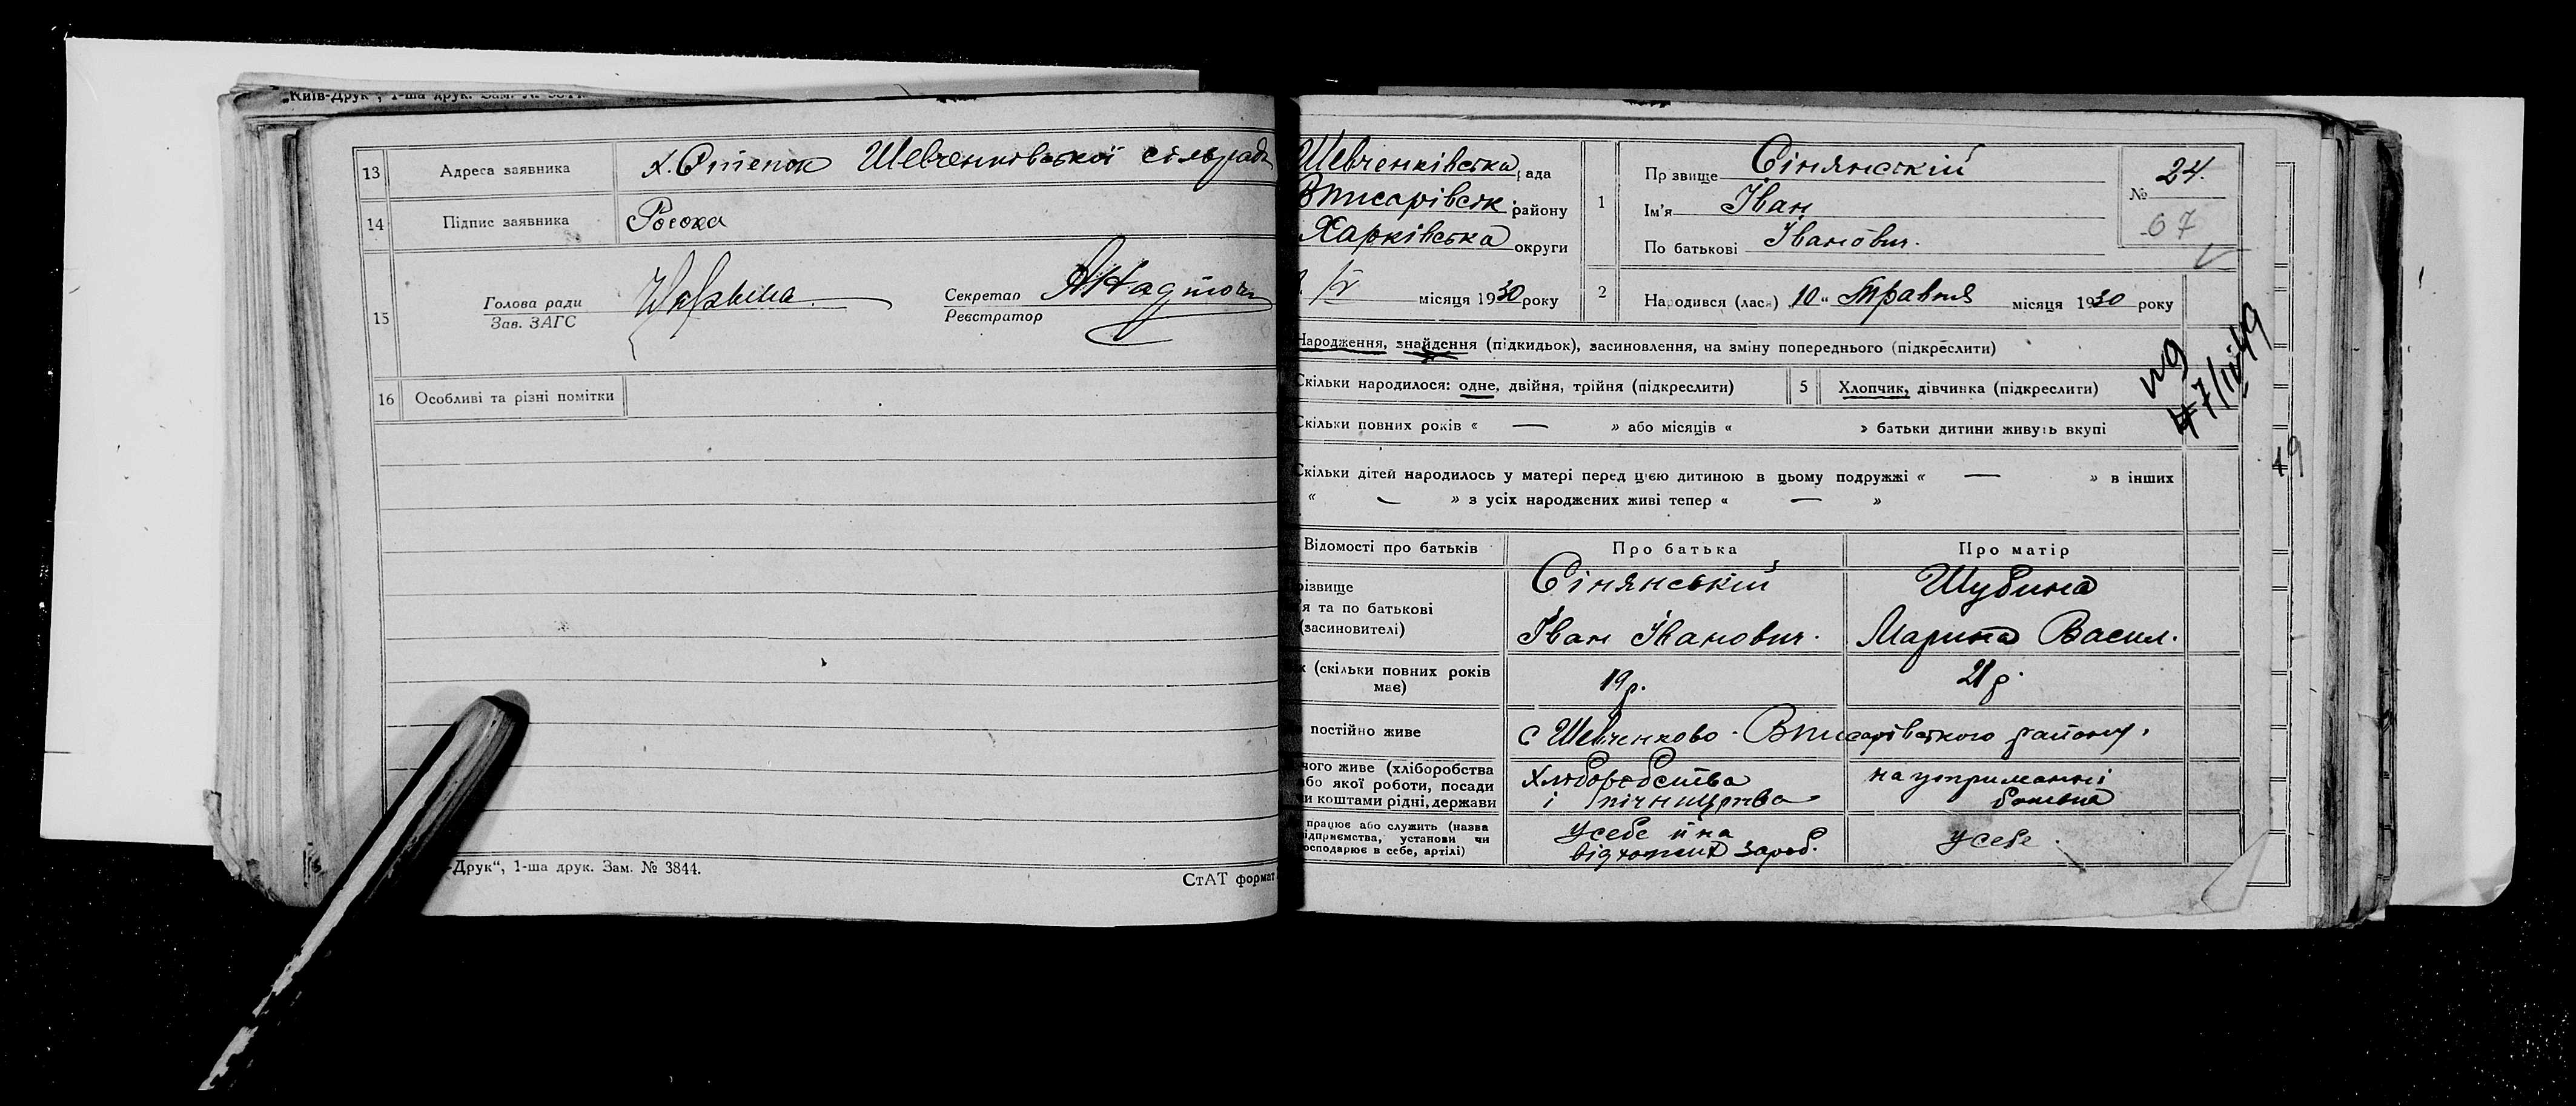 „Київ-Друк", 1-ша друк. Зам. № 3844.
13 Адреса заявника х. Степок Шевченківської сільради
14 Підпис заявника Росоха
15 Голова ради
Зав. ЗАГС
Секретар
Реєстратор
16 Особливі та різні помітки
-Друк“, 1-ша друк. Зам. № 3844.
СтАТ формат
Шевченківська рада
Вписарівськ. району
Харківська округи
IV місяця 1930 року
1 Прізвище Сінянський
Ім'я Іван
По батькові Іванович.
№ 24.
67
2 Народився (лася) 10 " Травня місяця 1930 року
Народження, знайдення (підкидьок), засиновлення, на зміну попереднього (підкреслити)
Скільки народилося: одне, двійня, трійня (підкреслити) 5 Хлопчик, дівчинка (підкреслити)
Скільки повних років « — » або місяців « » батьки дитини живуть вкупі
Скільки дітей народилось у матері перед цією дитиною в цьому подружжі « — » в інших
« — » з усіх народжених живі тепер « — »
Відомості про батьків Про батька Про матір
різвище Сінянський Шубина
я та по батькові
(засновителі) Іван Іванович. Марина Васил.
к (скільки повних років
має) 19 р. 21 р.
постійно живе с Шевченково Вписарівського району.
чого живе (хліборобства
або якої роботи, посади
и коштами рідні, держави
Хліборобства
і пічництва
на утриманні
працює або служить (назва
ідприємства, установи чи
осподарює в себе, артілі)
у себе й на
відхожих зароб.
у себе.
19